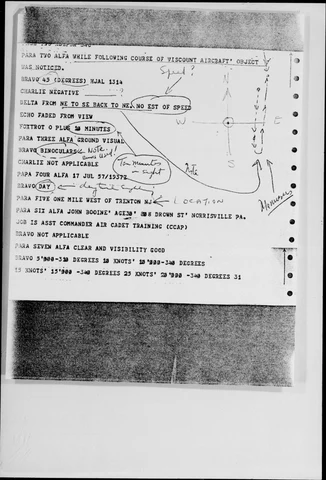 PARA TWO ALFA WHILE FOLLOWING COURSE OF VISCOUNT AIRCRAFT' OBJECT
WAS NOTICED.
Speed?
BRAVO 45 (DEGREES)
CHARLIE NEGATIVE ?
DELTA FROM NE TO SE BACK TO NE. NO EST OF SPEED
N
W
E
S
ECHO FADED FROM VIEW
FOXTROT 0 PLUS 10 MINUTES
PARA THREE ALFA GROUND VISUAL
BRAVO BINOCULARS Note!
CHARLIE NOT APPLICABLE
Ten minutes
PAPA FOUR ALFA 17 JUL 57/1937Z
BRAVO DAY
PARA FIVE ONE MILE WEST OF TRENTON NJ LOCATION
PARA SIX ALFA JOHN BOOINE' AGE BROWN ST' MORRISVILLE PA.
JOB IS ASST COMMANDER AIR CADET TRAINING (CCAP)
BRAVO NOT APPLICABLE
PARA SEVEN ALFA CLEAR AND VISIBILITY GOOD
BRAVO 5'000-310 DEGREES 10 KNOTS' 10'000-340 DEGREES
15 KNOTS' 15'000 -340 DEGREES 25 KNOTS' 20'000 -340 DEGREES 31